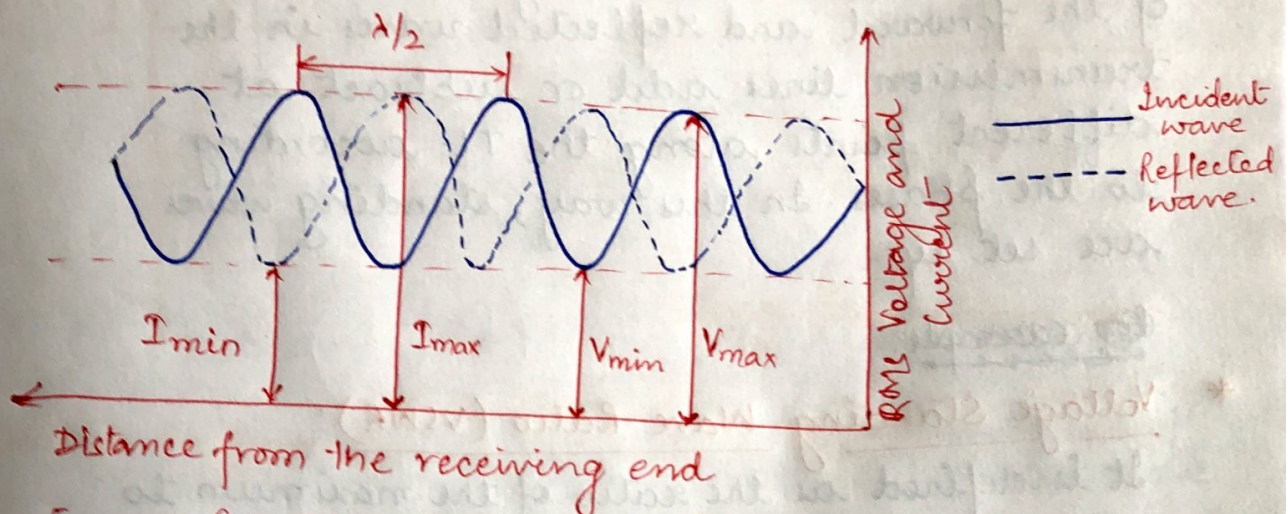 λ/2
Incident
wave
Reflected
wave.
RMS Voltage and
Current
Imin
Imax
Vmin
Vmax
Distance from the receiving end